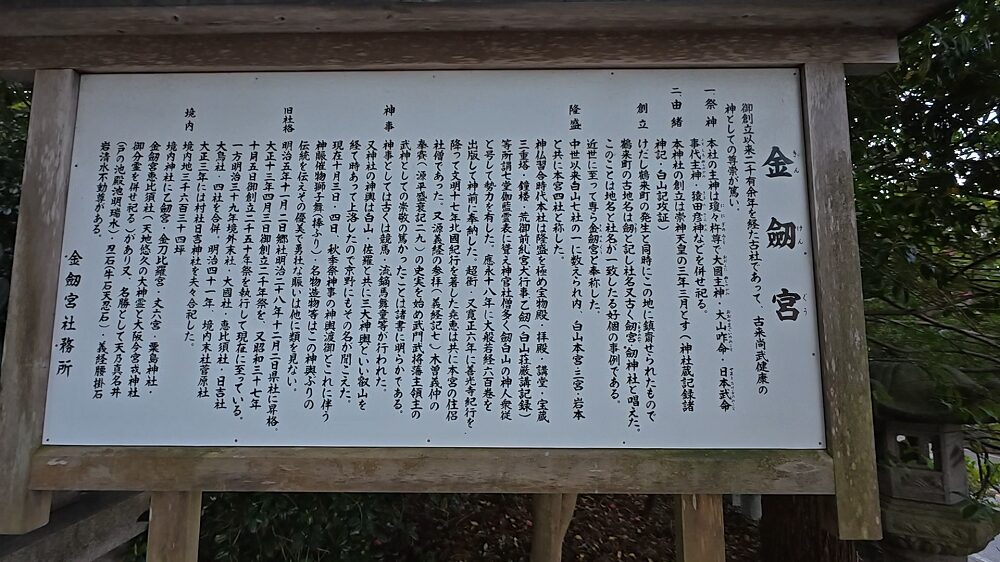 金劔宮
きんけんぐう
御創立以来二千有余年を経た古社であって、古来尚武健康の
神としての尊崇が篤い。
一、祭神
本社の主神は瓊々杵尊で大国主神・大山咋命・日本武命
事代主神・猿田彦神などを併せ祀る。
二、由緒
本神社の創立は崇神天皇の三年三月とす(神社蔵記録諸
神記・白山記攷証)
創立
けだし鶴来町の発生と同時にこの地に鎮斎せられたもので
鶴来町の古地名は劔と記し社名又古く劔宮・劔神社と唱えた。
このことは地名と社名が一致した好個の事例である。
近世に至って専ら金劔宮と奉称した。
隆盛
中世以来白山七社の一に数えられ内、白山本宮・三宮・岩本
と共に本宮四社と称した。
神仏習合時代本社は隆盛を極め宝物殿・拝殿・講堂・宝蔵、
三重塔・鐘楼・荒御前糺宮大行事七劔(白山荘厳講記録)
等所謂七堂伽藍霊表に聳え神官社僧多く劔白山の神人衆徒
と号して勢力を有した。應永十八年に大般若経六百巻を
出版して神前に奉納した。超衛・又寛正六年に善光寺紀行を
降って文明十七年北國紀行を著した尭恵は共に本宮の住侶
社僧であった。又源義経の参拝(義経記七)木曽義仲の
奉賽(源平盛衰記二九)の史実を始め武門武将藩主領主の
武神としての崇敬の篤かったことは諸書に明らかである。
神事
神事としては古くは競馬・流鏑馬舞童等が行われた。
又神社の神輿は白山・佐羅と共に三大神輿といい叡山を
経て時あっては上落したので京野にもその名が聞こえた。
現在十月三日・四日、秋季祭神事の神輿渡御とこれに伴う
神賑催物獅子舞(棒ふり)名物造物等はこの神輿ぶりの
伝統を伝えその優美で勇壮な賑いは他に類を見ない。
旧社格
明治五年十一月二日郷社明治二十八年十一月二日県社に昇格。
大正十三年四月三日御創立二千年祭を、又昭和三十七年
十月五日御創立二千五十年祭を執行して現在に至っている。
一方明治三十九年境外末社・大國社・恵比須社・日吉社
大鳥社・四社を合併、明治四十一年、境内末社菅原社
大正三年には村社日吉神社を夫々合祀した。
境内
境内地三千六百三十四坪
境内神社に乙劔宮・金刀比羅宮・丈六宮・粟島神社・
金劔宮恵比須社(天地悠久の大神霊と大阪今宮戎神社
御分霊を併せ祀る)があり又、名勝として天乃真名井
(戸の池殿池明瑞水)・忍石(牛石天忍石)・義経腰掛石
岩清水不動尊がある。
金劔宮社務所